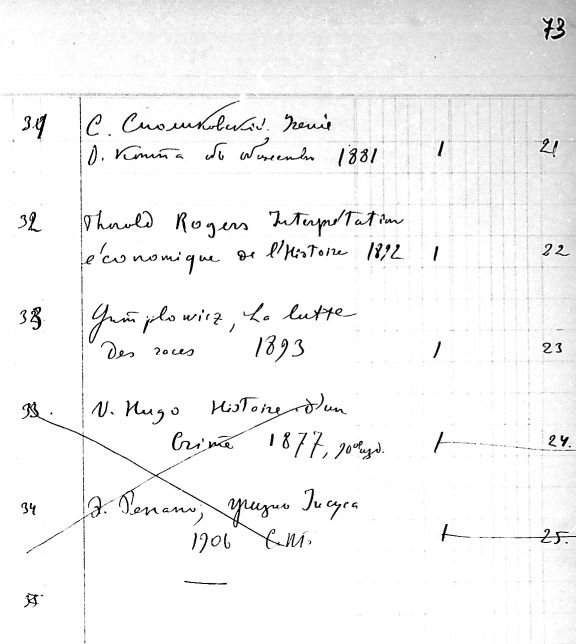 73
31 С. Смоликовский. Учение
О. Конта об обществе 1881 1 21
32 Thorold Rogers Interprétation
économique de l'Histoire 1892 1 22
33 Gumplowicz, La lutte
des races 1893 1 23
33. V. Hugo Histoire d'un
Crime 1877, 1 24.
34 Э. Ренан, Иисуса
1906 С.П. 1 25.
35